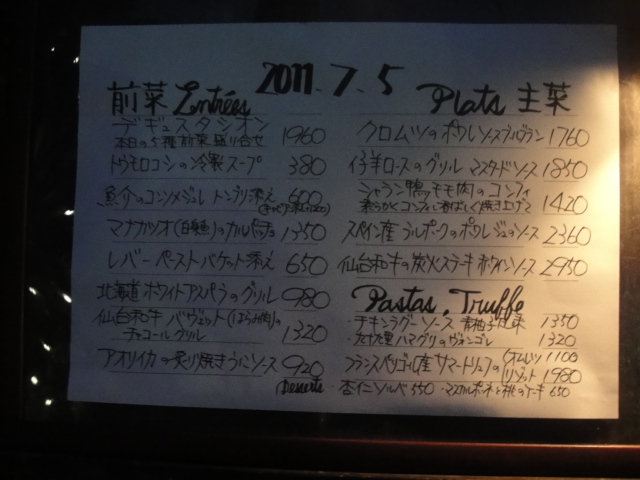 2011.7.5
前菜 Entrées
デギュスタシオン
本日の5種前菜盛り合せ 1960
トウモロコシの冷製スープ 380
魚介のコンソメジュレ トンブリ添え 600
マナガツオ(白身魚)のカルパッチョ 1350
レバーペースト バケット添え 650
北海道ホワイトアスパラのグリル 980
仙台和牛 バヴェット(はらみ肉)の
チャコールグリル 1320
アオリイカの炙り焼きうにソース 920
Plats 主菜
クロムツのポワレ ソースブールブラン 1760
仔羊ロースのグリル マスタードソース 1850
シャラン鴨モモ肉のコンフィ
柔らかくコンフィに香ばしく焼き上げて 1420
スペイン産 ブルポークのポワレ ジュのソース 2360
仙台和牛の炭火ステーキ 赤ワインソース 2950
Pastas, Truffe
・チキンラグーソース 青柚子風味 1350
・九十九里ハマグリのヴォンゴレ 1320
フランスペリゴール産 サマートリュフの(オムレツ 1100
(リゾット 1980
Desserts ・杏仁ソルベ 550 ・マスカルポーネと桃のケーキ 650